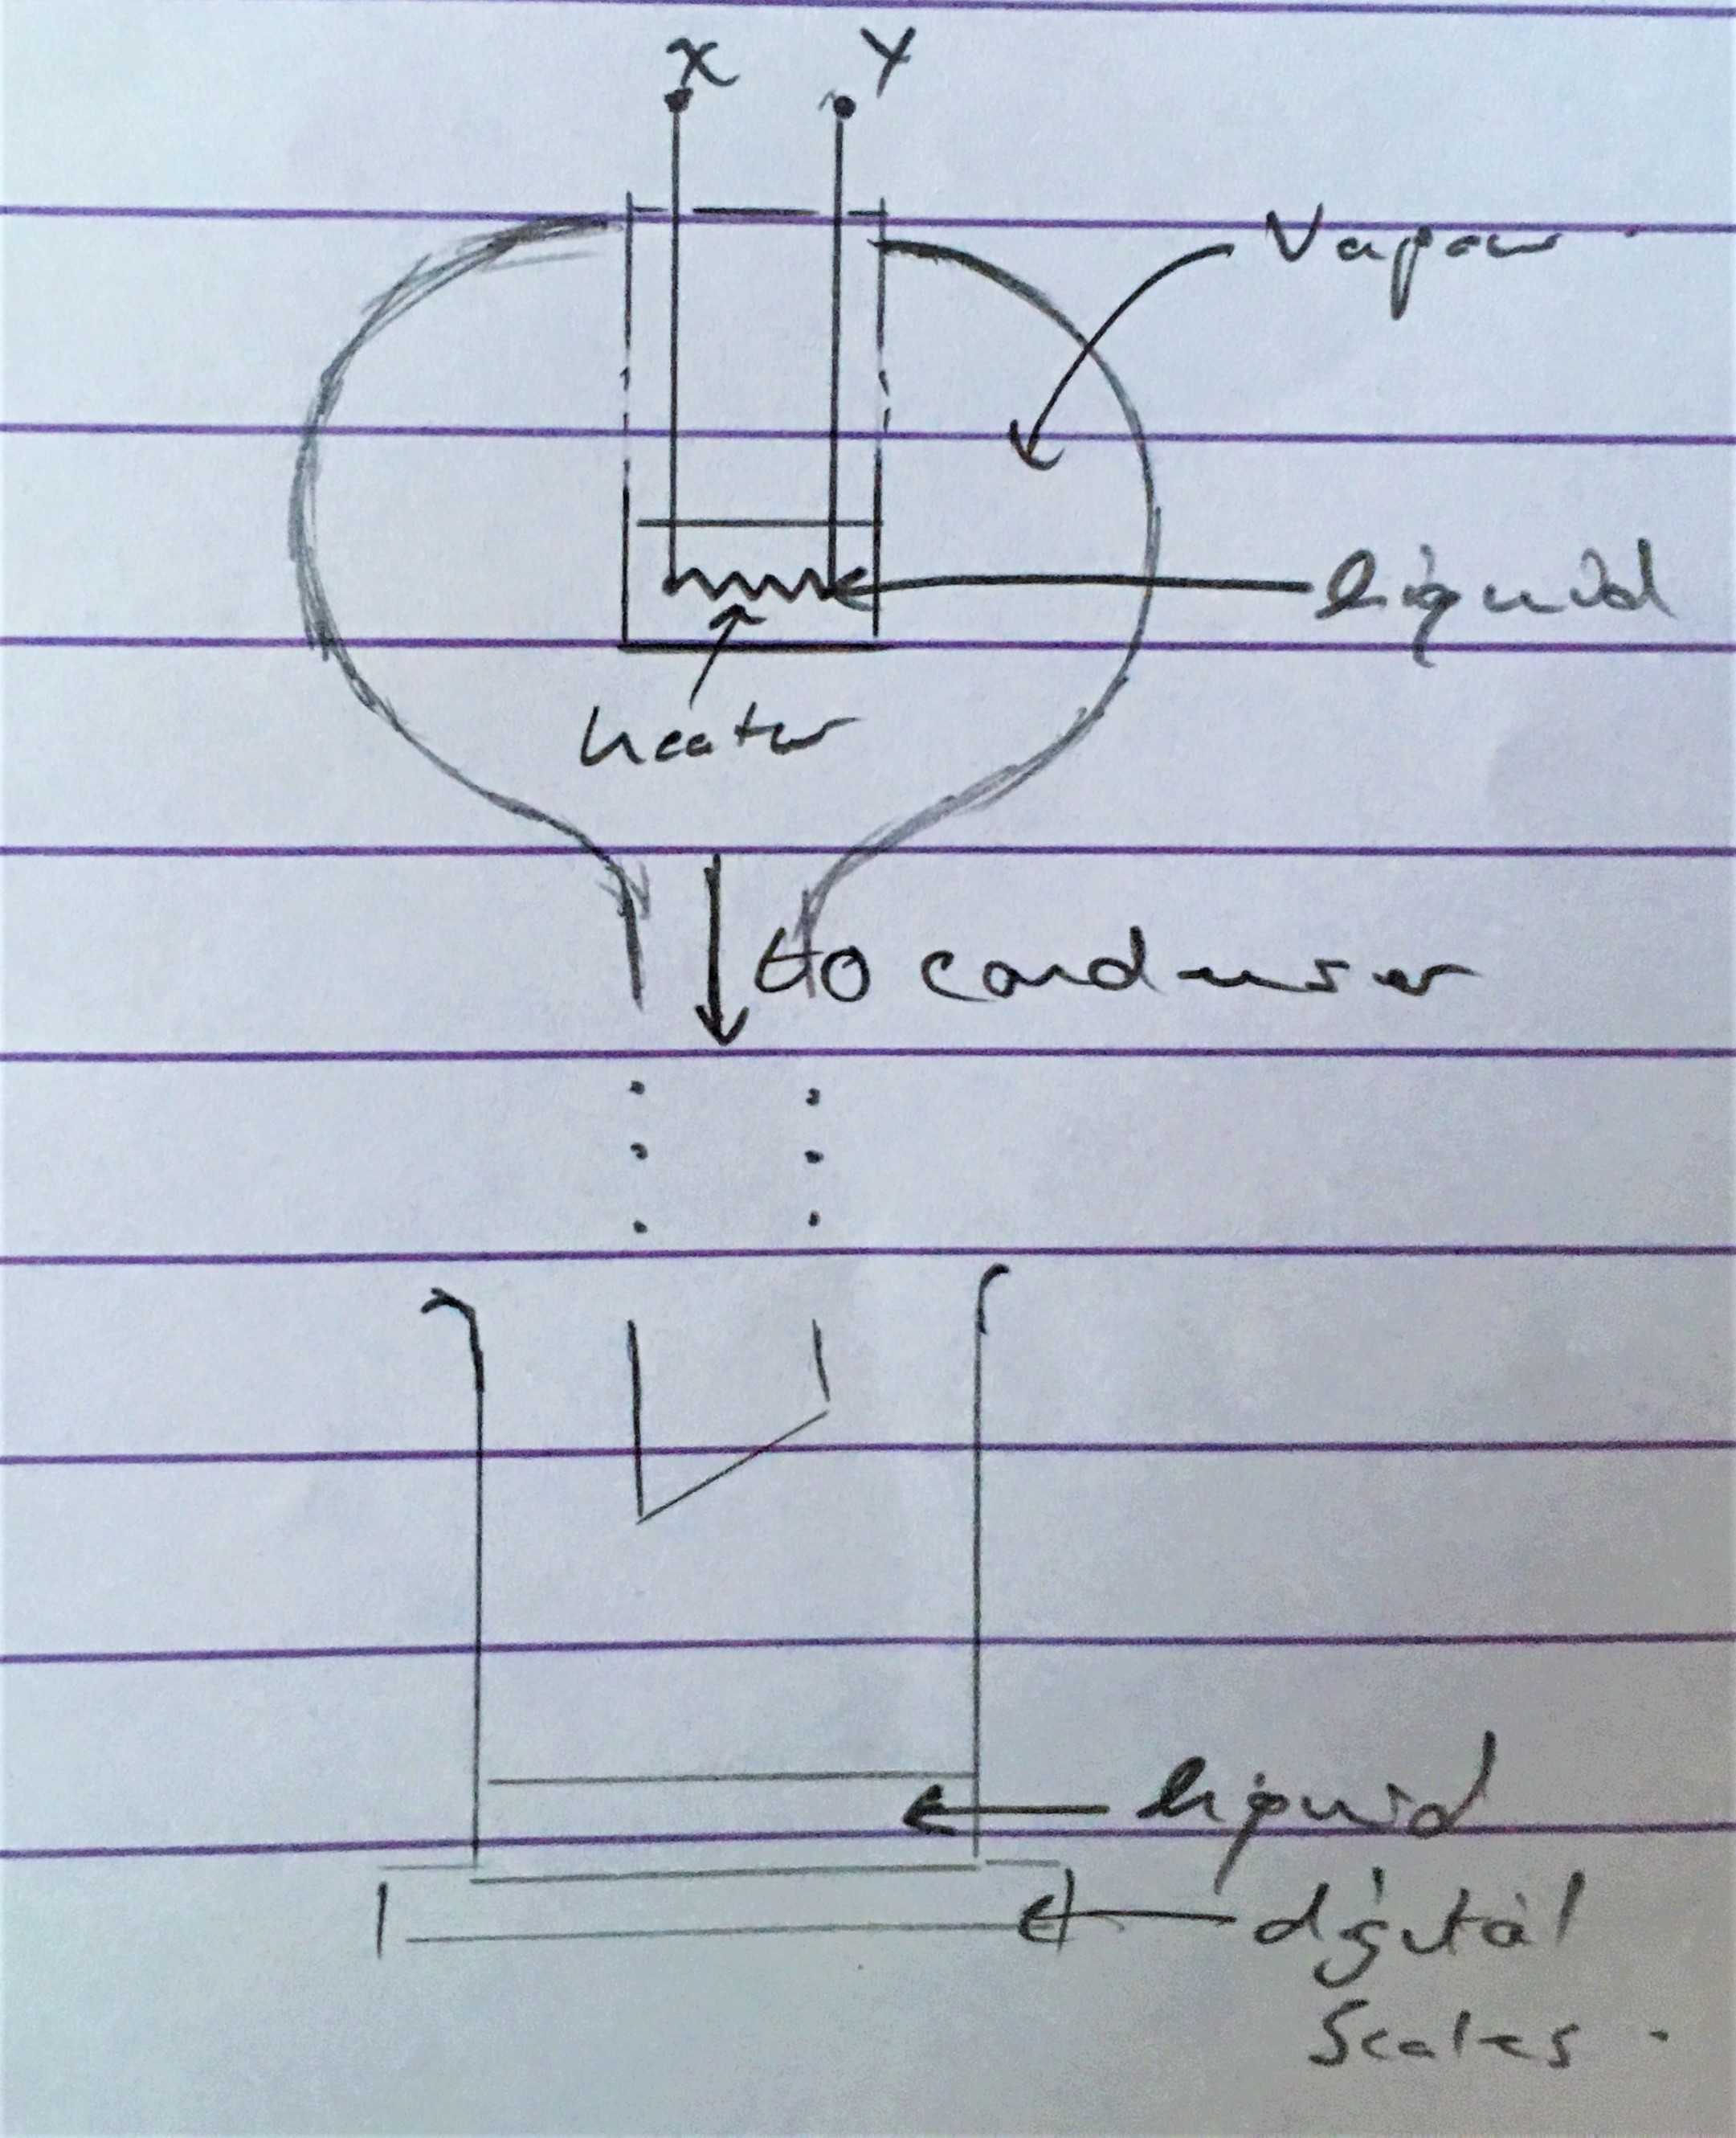 X Y
Vapour
liquid
heater
to condenser
liquid
digital
Scales.